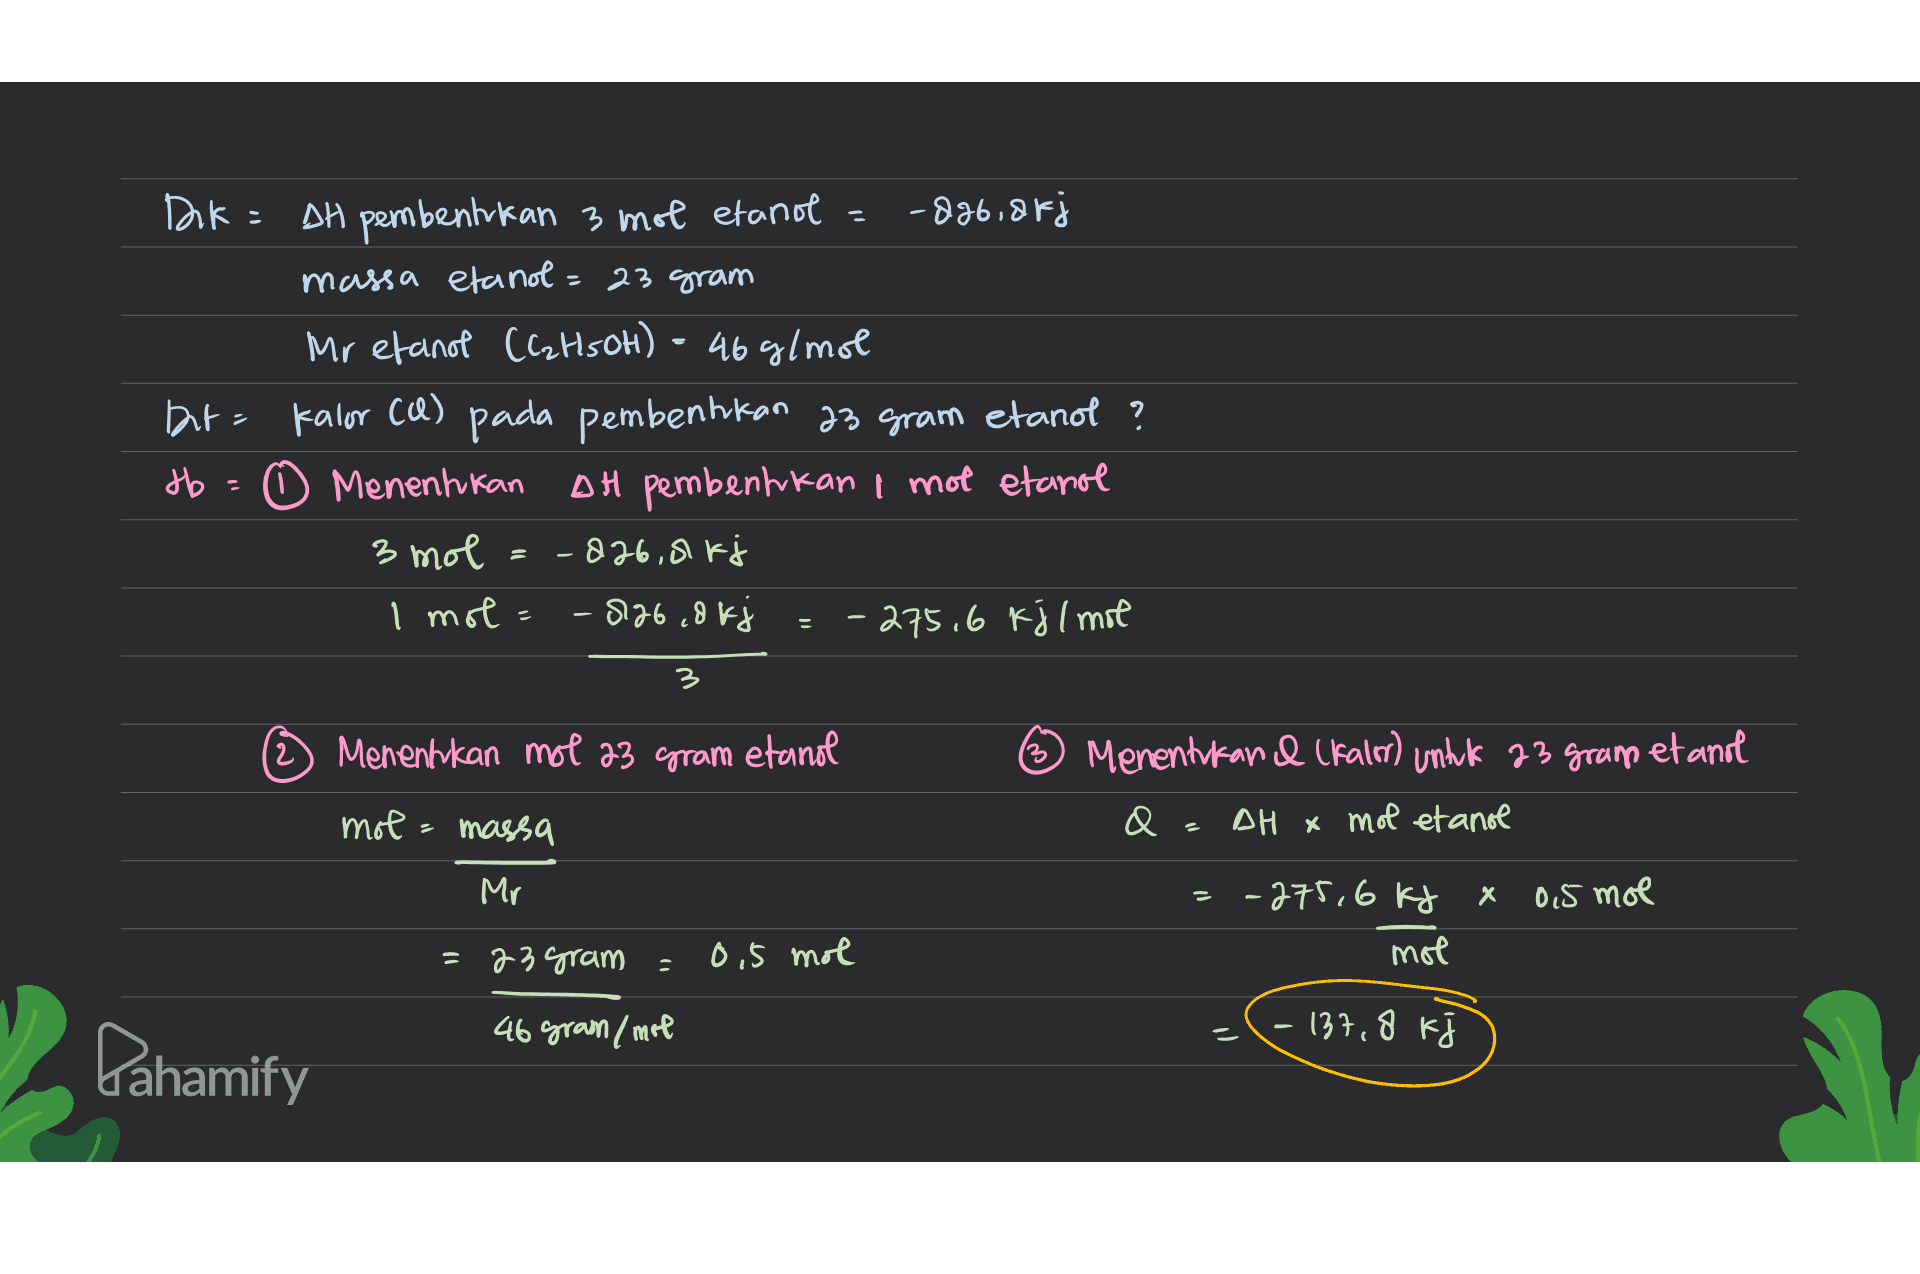 Dik = ΔH pembentukan 3 mol etanol = -826,8 kj
massa etanol = 23 gram
Mr etanol (C₂H₅OH) = 46 g/mol
Dit = kalor (Q) pada pembentukan 23 gram etanol ?
Jb = ① Menentukan ΔH pembentukan 1 mol etanol
3 mol = -826,8 kj
1 mol = -826,8 kj = -275,6 kj/mol
3
② Menentukan mol 23 gram etanol
mol = massa
Mr
= 23 gram = 0,5 mol
46 gram/mol
③ Menentukan Q (kalor) untuk 23 gram etanol
Q = ΔH x mol etanol
= -275,6 kj x 0,5 mol
mol
= -137,8 kj
Pahamify